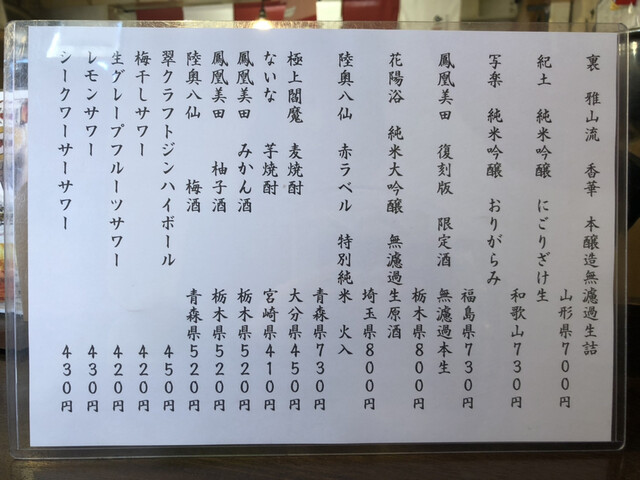 裏　雅山流　香華　本醸造無濾過生詰
山形県７００円
紀土　純米吟醸　にごりざけ生
和歌山７３０円
写楽　純米吟醸　おりがらみ
福島県７３０円
鳳凰美田　復刻版　限定酒　無濾過本生
栃木県８００円
花陽浴　純米大吟醸　無濾過生原酒
埼玉県８００円
陸奥八仙　赤ラベル　特別純米　火入
青森県７３０円
極上閻魔　麦焼酎　大分県４５０円
ないな　芋焼酎　宮崎県４１０円
鳳凰美田　みかん酒　栃木県５２０円
鳳凰美田　柚子酒　栃木県５２０円
陸奥八仙　梅酒　青森県５２０円
翠クラフトジンハイボール　４５０円
梅干しサワー　４２０円
生グレープフルーツサワー　４２０円
レモンサワー　４３０円
シークワーサーサワー　４３０円